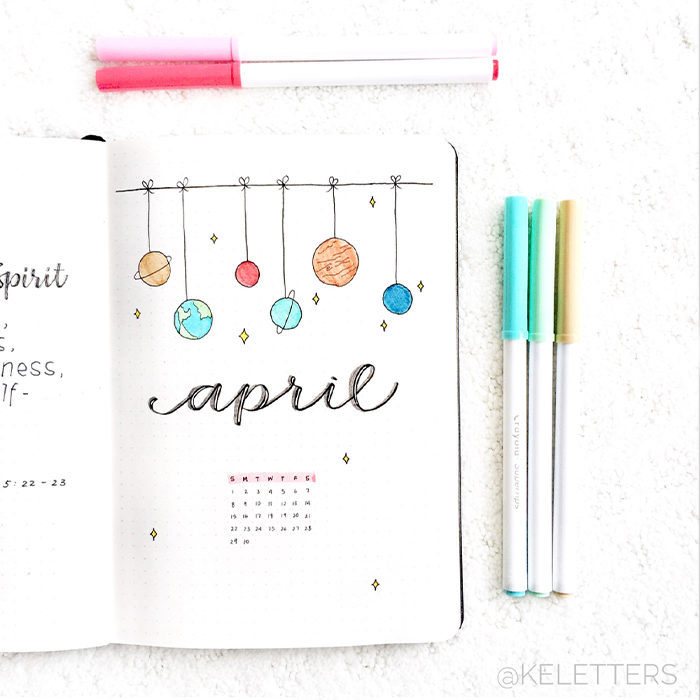 Spirit
,
s,
ness,
lf-
5:22-23
april
S M T W T F S
1 2 3 4 5 6 7
8 9 10 11 12 13 14
15 16 17 18 19 20 21
22 23 24 25 26 27 28
29 30
Crayola SuperTips
@KELETTERS